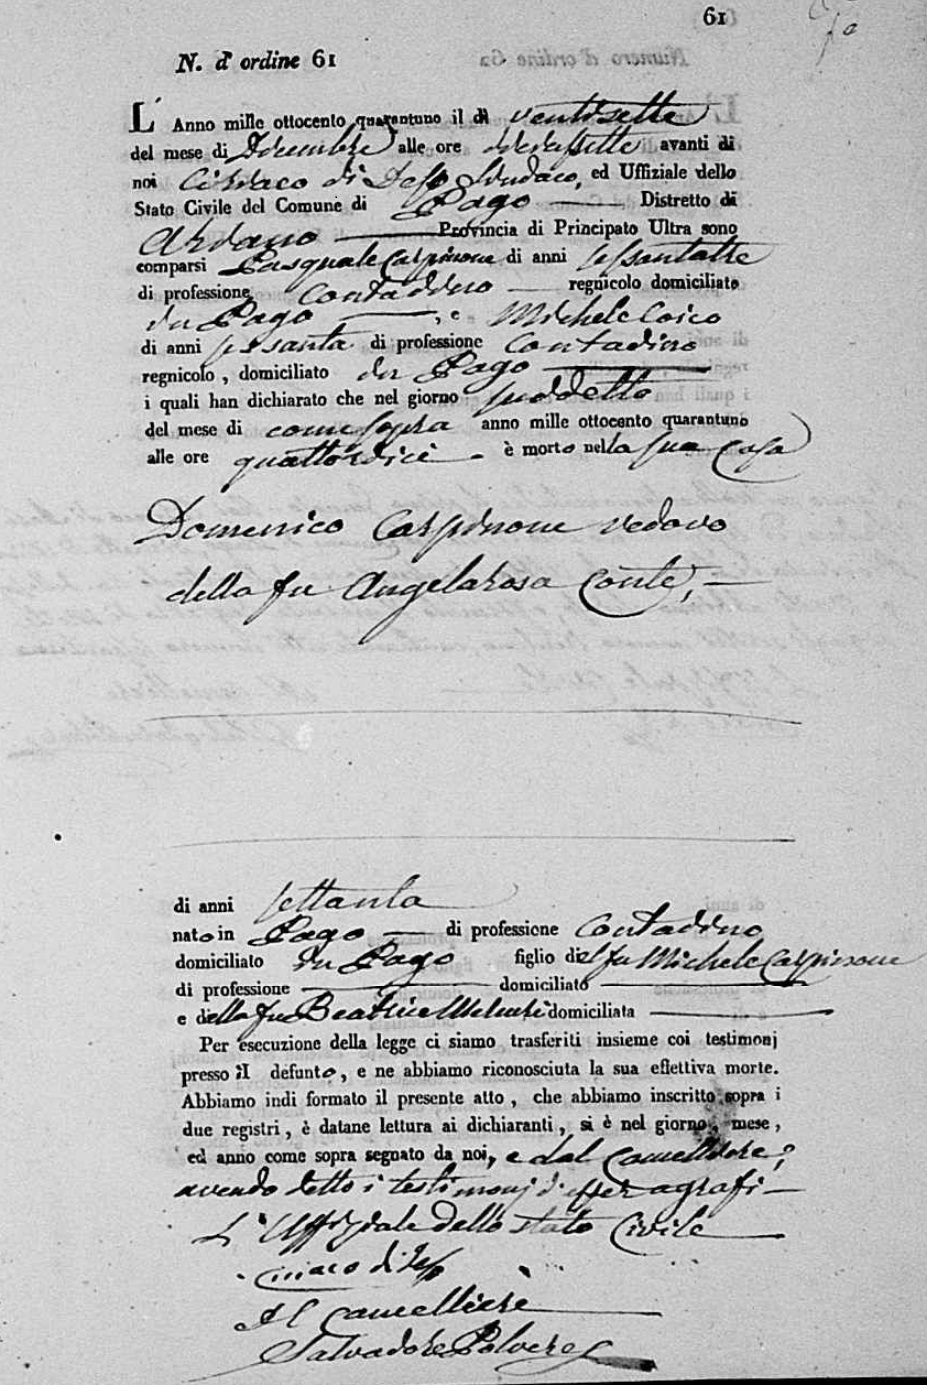 61
N. d'ordine 61
L' Anno mille ottocento quarantuno il dì ventisette
del mese di Dicembre alle ore diciassette avanti di
noi Ciriaco di Sindaco, ed Uffiziale dello
Stato Civile del Comune di Pago Distretto di
Ariano Provincia di Principato Ultra sono
comparsi Pasquale Carpinone di anni sessantatre
di professione Contadino regnicolo domiciliato
in Pago , e Michele Coico
di anni sessanta di professione Contadino
regnicolo, domiciliato in Pago
i quali han dichiarato che nel giorno suddetto
del mese di come sopra anno mille ottocento quarantuno
alle ore quattordici è morto nella sua Casa
Domenico Carpinone vedovo
della fu Angelarosa Conte,
di anni settanta
nato in Pago di professione Contadino
domiciliato in Pago figlio del fu Michele Carpinone
di professione domiciliato
e della fu Beatrice domiciliata
Per esecuzione della legge ci siamo trasferiti insieme coi testimonj
presso il defunto, e ne abbiamo riconosciuta la sua effettiva morte.
Abbiamo indi formato il presente atto, che abbiamo inscritto sopra i
due registri, è datane lettura ai dichiaranti, si è nel giorno, mese,
ed anno come sopra segnato da noi, e dal Cancelliere,
avendo detto i testimonj d'esser agrafi
L'Uffiziale dello stato Civile
Ciriaco di
Il Cancelliere
Salvadore Polvere